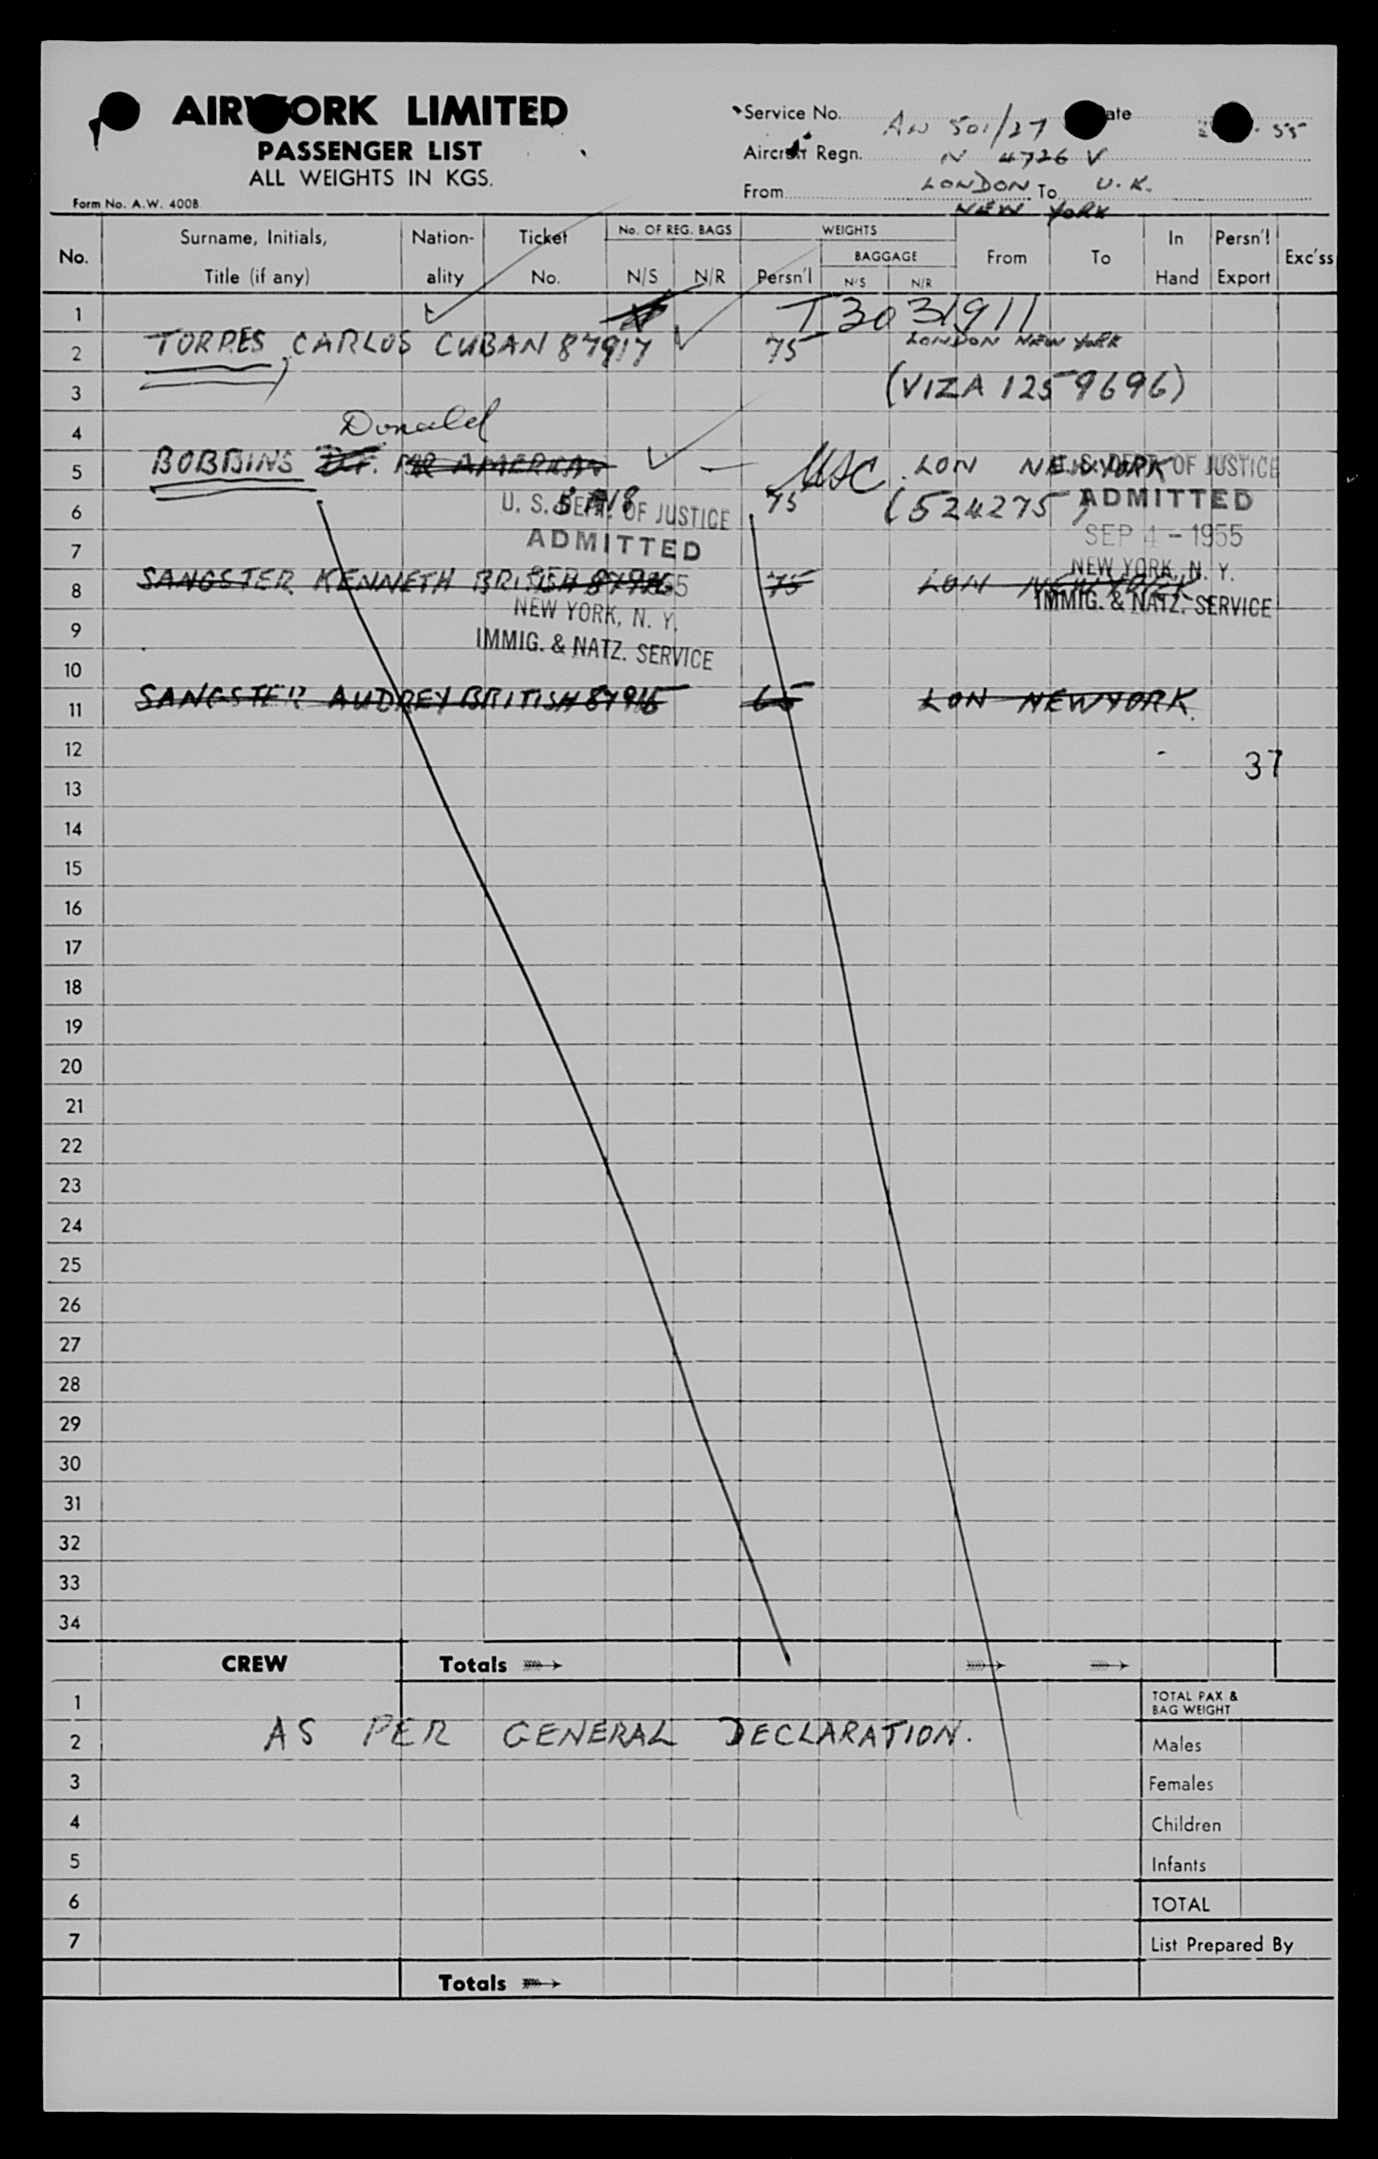 AIRWORK LIMITED
PASSENGER LIST
ALL WEIGHTS IN KGS.
Form No. A.W. 400B
Service No. AW 501/27 Date . 55
Aircraft Regn. N 4726 V
From LONDON To U.K.
NEW YORK
No. Surname, Initials, Title (if any) Nation-ality Ticket No. No. OF REG. BAGS N/S N/R WEIGHTS Persn'l BAGGAGE N/S N/R From To In Hand Persn'l Export Exc'ss
1 T3031911
2 TORRES, CARLOS CUBAN 87917 75 LONDON NEW YORK
3 (VIZA 1259696)
4 Donald
5 BOBBINS D.F. MR AMERICAN — USC. LON NEWYORK
6 75 (524275)
U. S. DEPT. OF JUSTICE
ADMITTED
SEP 4 - 1955
NEW YORK, N. Y.
IMMIG. & NATZ. SERVICE
U. S. DEPT. OF JUSTICE
ADMITTED
NEW YORK, N. Y.
IMMIG. & NATZ. SERVICE
7
8 SANGSTER KENNETH BRITISH 75 LON NEWYORK
9
10
11 SANGSTER AUDREY BRITISH 87915 65 LON NEWYORK.
12 37
13
14
15
16
17
18
19
20
21
22
23
24
25
26
27
28
29
30
31
32
33
34
CREW Totals
1 TOTAL PAX & BAG WEIGHT
2 AS PER GENERAL DECLARATION. Males
3 Females
4 Children
5 Infants
6 TOTAL
7 List Prepared By
Totals